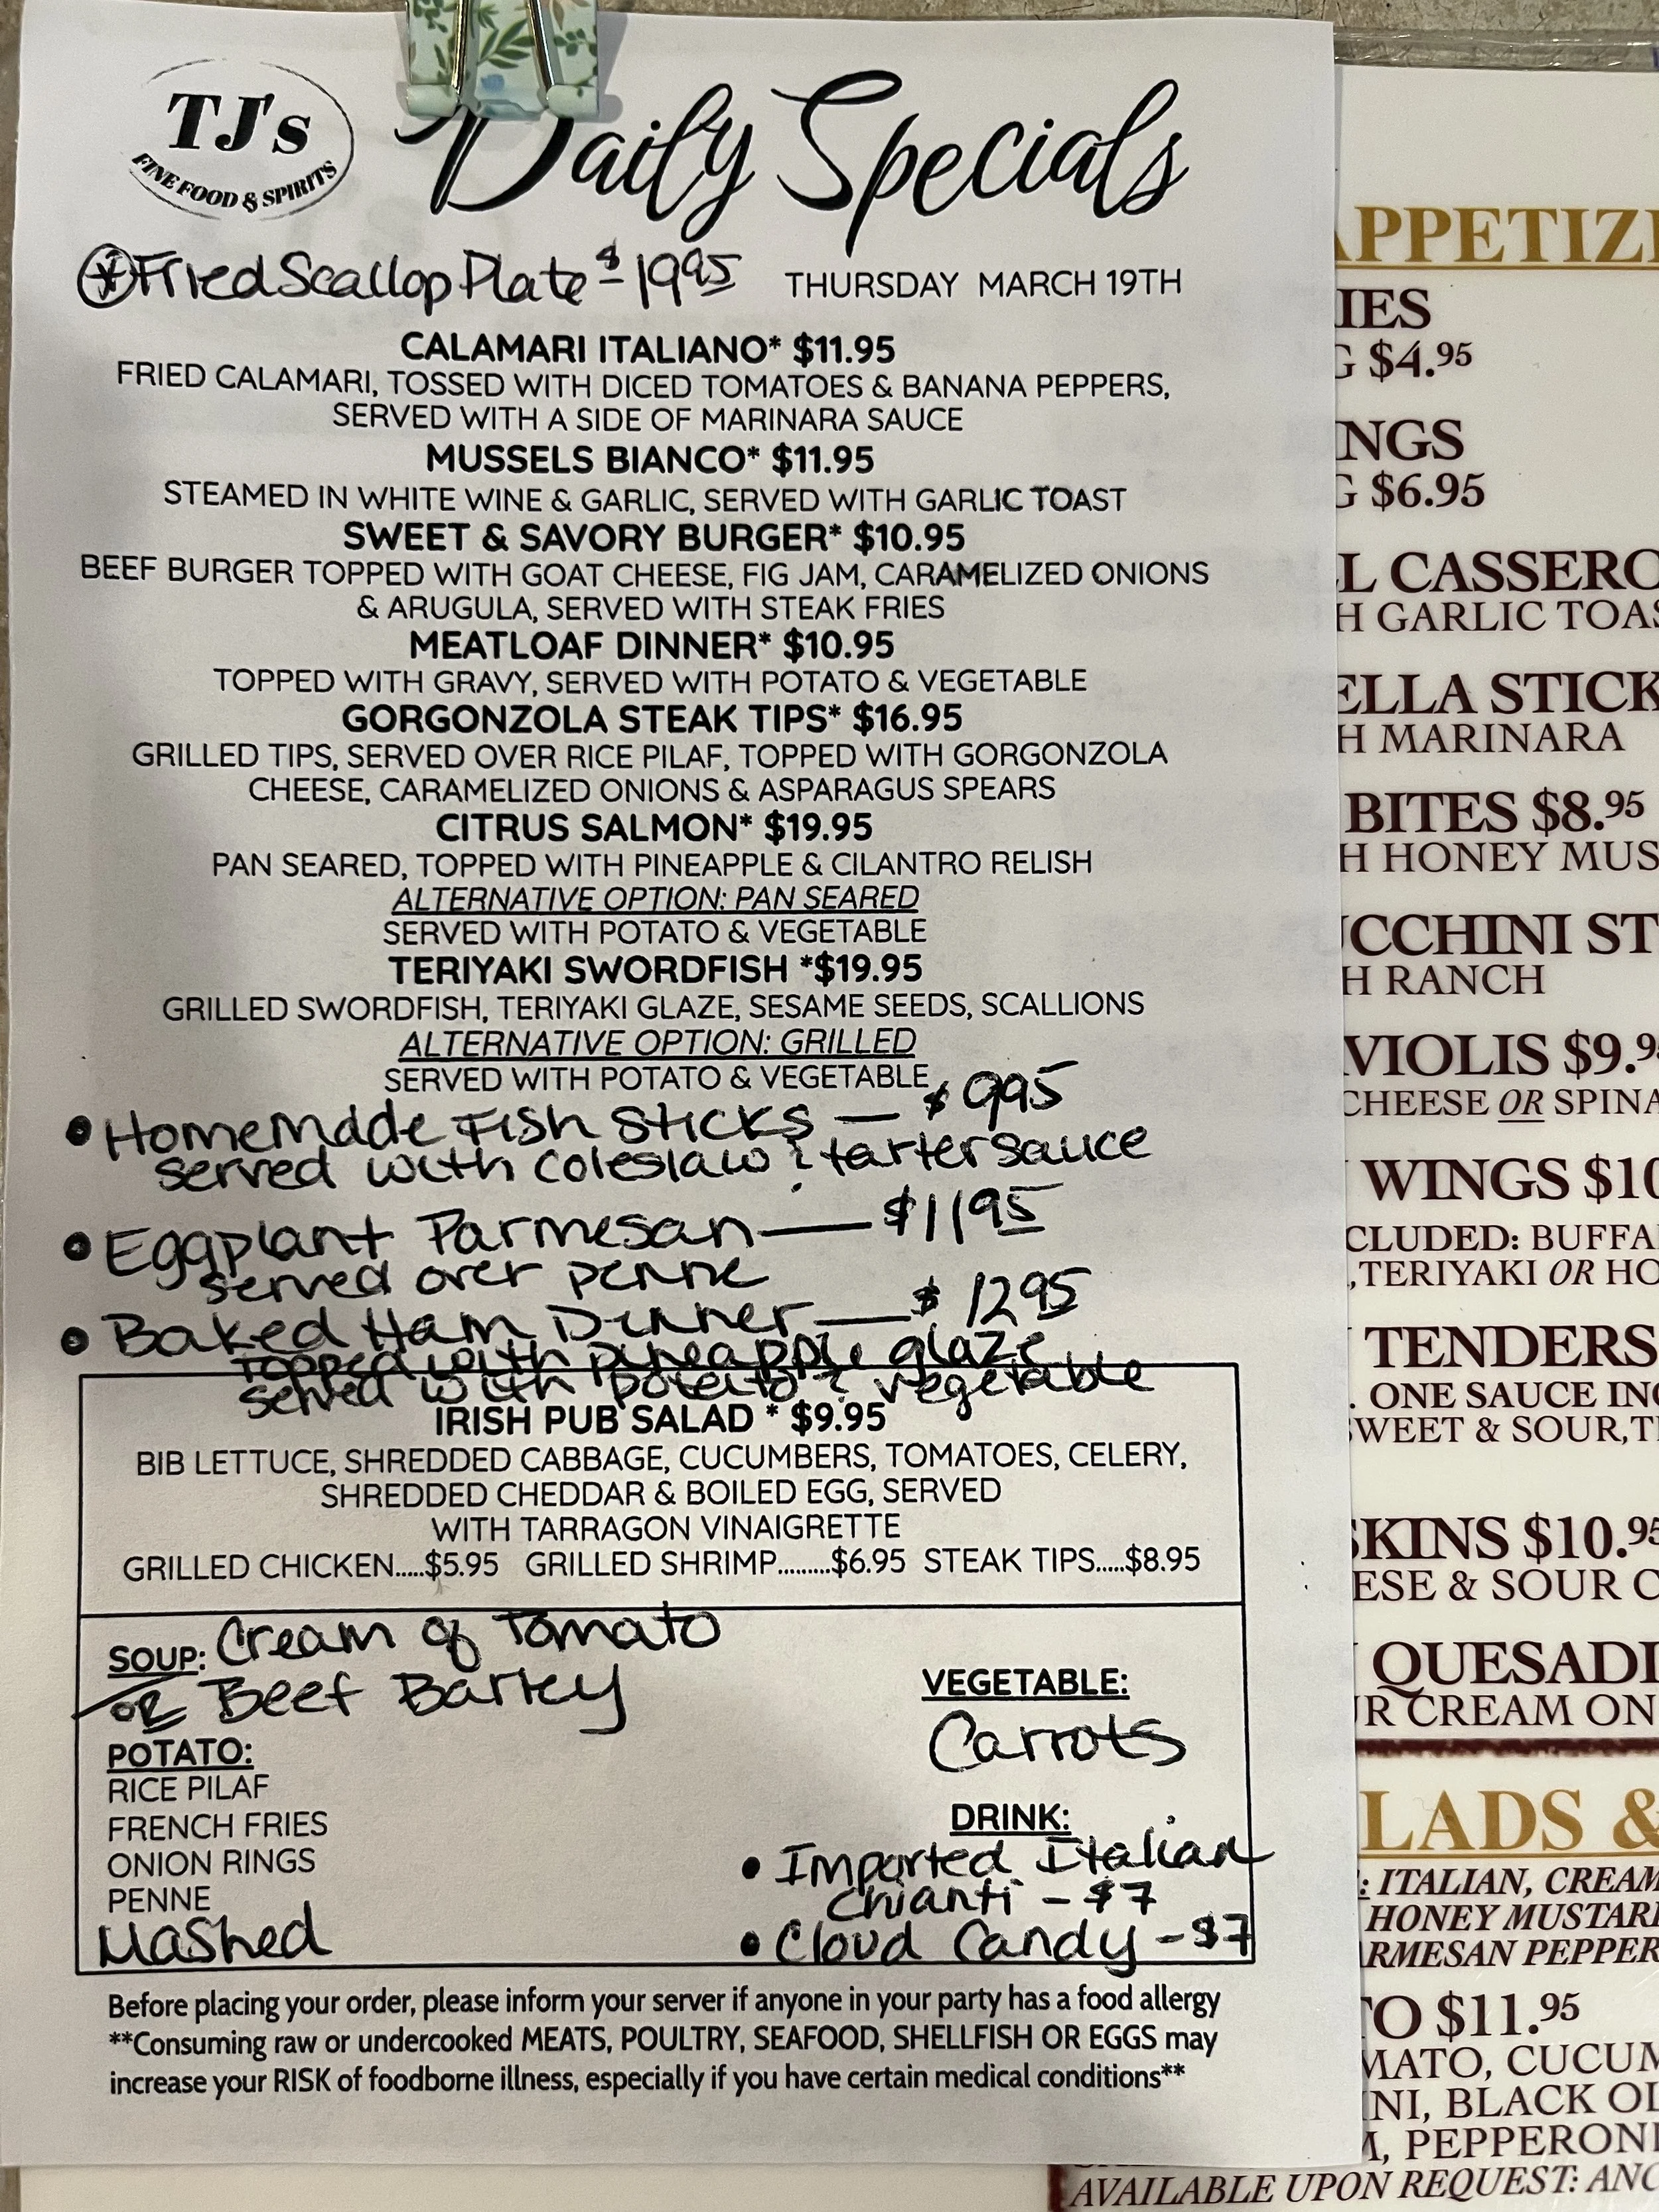 TJ's
FINE FOOD & SPIRITS
Daily Specials
Fried Scallop Plate $ - 19.95
THURSDAY MARCH 19TH
CALAMARI ITALIANO* $11.95
FRIED CALAMARI, TOSSED WITH DICED TOMATOES & BANANA PEPPERS,
SERVED WITH A SIDE OF MARINARA SAUCE
MUSSELS BIANCO* $11.95
STEAMED IN WHITE WINE & GARLIC, SERVED WITH GARLIC TOAST
SWEET & SAVORY BURGER* $10.95
BEEF BURGER TOPPED WITH GOAT CHEESE, FIG JAM, CARAMELIZED ONIONS
& ARUGULA, SERVED WITH STEAK FRIES
MEATLOAF DINNER* $10.95
TOPPED WITH GRAVY, SERVED WITH POTATO & VEGETABLE
GORGONZOLA STEAK TIPS* $16.95
GRILLED TIPS, SERVED OVER RICE PILAF, TOPPED WITH GORGONZOLA
CHEESE, CARAMELIZED ONIONS & ASPARAGUS SPEARS
CITRUS SALMON* $19.95
PAN SEARED, TOPPED WITH PINEAPPLE & CILANTRO RELISH
ALTERNATIVE OPTION: PAN SEARED
SERVED WITH POTATO & VEGETABLE
TERIYAKI SWORDFISH *$19.95
GRILLED SWORDFISH, TERIYAKI GLAZE, SESAME SEEDS, SCALLIONS
ALTERNATIVE OPTION: GRILLED
SERVED WITH POTATO & VEGETABLE
• Homemade Fish Sticks — $ 995
served with coleslaw & tarter sauce
• Eggplant Parmesan — $1195
served over penne
• Baked Ham Dinner — $ 1295
topped with pineapple glaze
served with potato & vegetable
IRISH PUB SALAD * $9.95
BIB LETTUCE, SHREDDED CABBAGE, CUCUMBERS, TOMATOES, CELERY,
SHREDDED CHEDDAR & BOILED EGG, SERVED
WITH TARRAGON VINAIGRETTE
GRILLED CHICKEN.....$5.95 GRILLED SHRIMP.........$6.95 STEAK TIPS.....$8.95
SOUP: Cream of Tomato
OR Beef Barley
POTATO:
RICE PILAF
FRENCH FRIES
ONION RINGS
PENNE
Mashed
VEGETABLE:
Carrots
DRINK:
• Imported Italian
Chianti - $7
• Cloud Candy - $7
Before placing your order, please inform your server if anyone in your party has a food allergy
**Consuming raw or undercooked MEATS, POULTRY, SEAFOOD, SHELLFISH OR EGGS may
increase your RISK of foodborne illness, especially if you have certain medical conditions**
APPETIZ
IES
G $4.95
NGS
G $6.95
L CASSERO
H GARLIC TOAS
ELLA STICK
H MARINARA
BITES $8.95
H HONEY MUS
UCCHINI ST
H RANCH
VIOLIS $9.9
CHEESE OR SPINA
WINGS $10
CLUDED: BUFFA
,TERIYAKI OR HO
TENDERS
. ONE SAUCE INC
SWEET & SOUR,T
SKINS $10.95
ESE & SOUR C
QUESADI
UR CREAM ON
LADS &
: ITALIAN, CREAM
HONEY MUSTAR
RMESAN PEPPER
TO $11.95
MATO, CUCUM
INI, BLACK OL
M, PEPPERONI
AVAILABLE UPON REQUEST: ANC